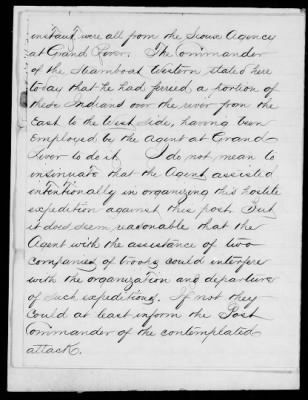 instant, were all from the Sioux Agency
at Grand River. The Commander
of the Steamboat Western stated here
today that he had ferried, a portion of
these Indians over the river from the
East to the West side, having been
employed by the Agent at Grand-
River to do it. I do not mean to
insinuate that the Agent assisted
intentionally in organizing this hostile
expedition against this post. But
it does seem reasonable that the
Agent with the assistance of two
companies of troops could interfere
with the organization and departure
of such expeditions. If not they
could at least inform the Post
Commander of the contemplated
attack.